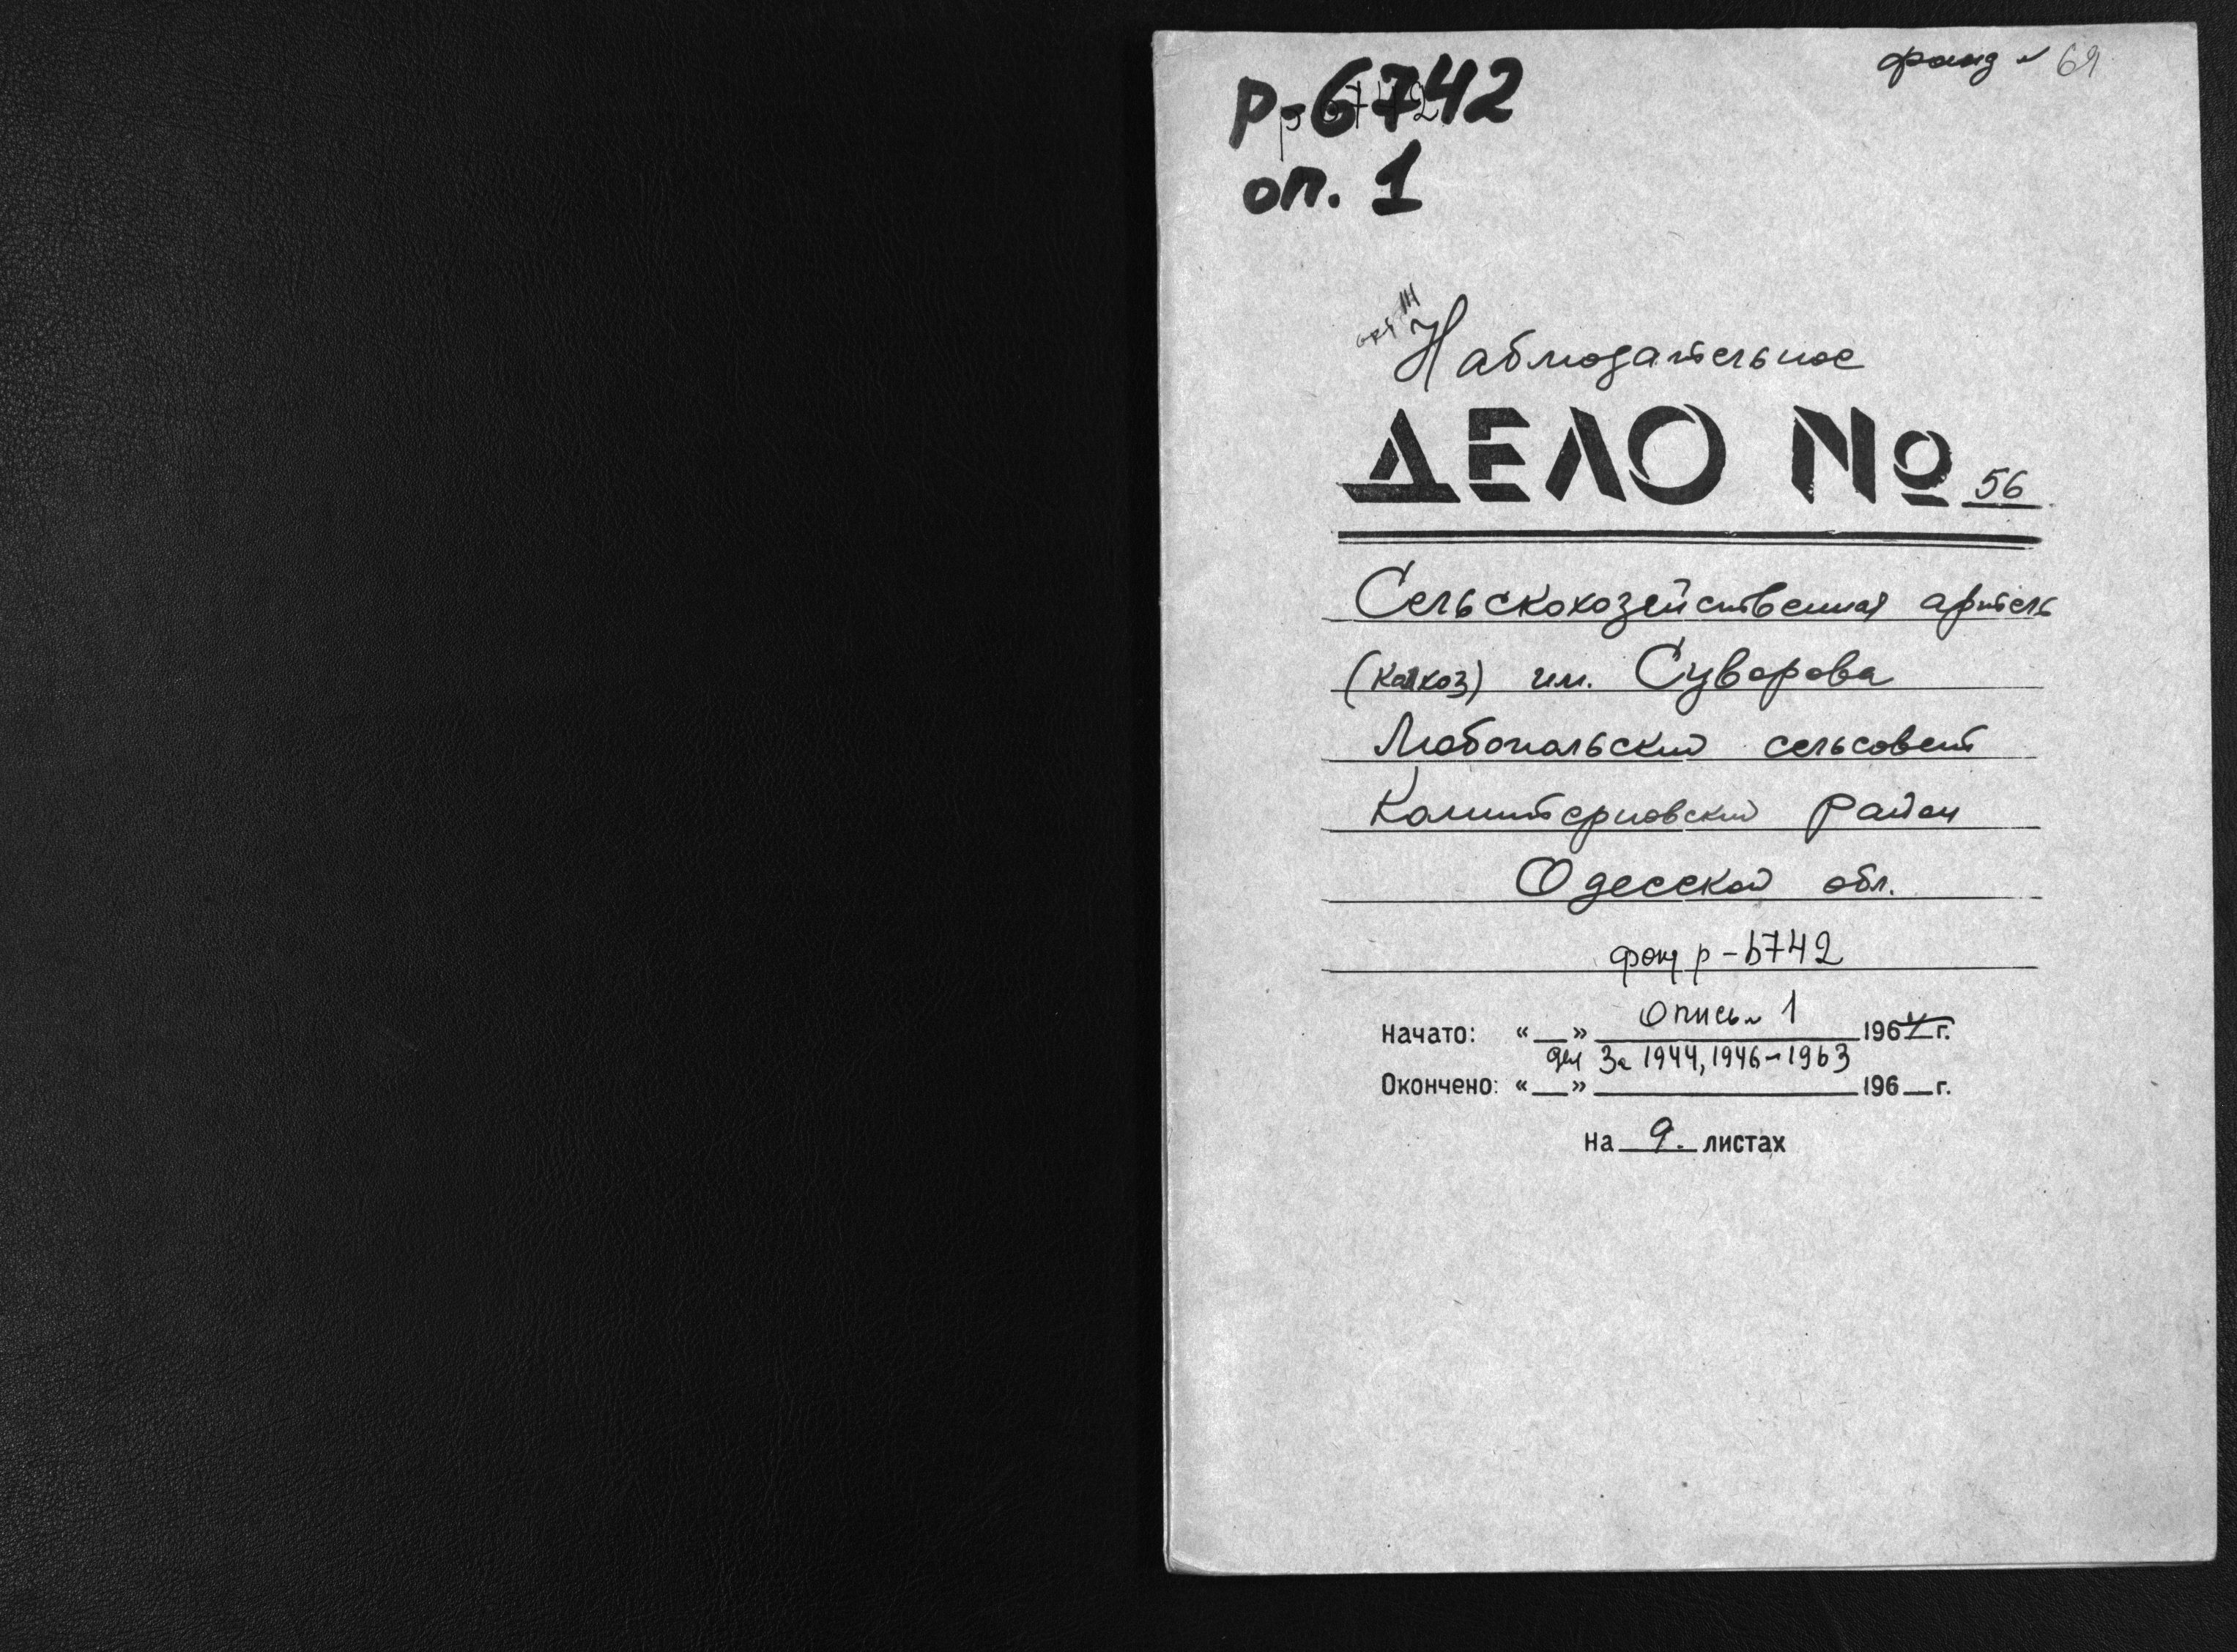 фонд № 69
Р-6742
оп. 1
Наблюдательное
ДЕЛО № 56
Сельскохозяйственная артель
(колхоз) им. Суворова
Любопольский сельсовет
Коминтерновский район
Одесской обл.
фонд р-6742
Опись № 1
Начато: «__» 1964 г.
дел За 1944, 1946-1963
Окончено: «__» 196_ г.
на 9. листах